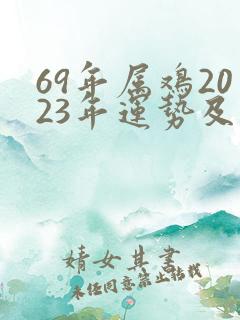 69年属鸡20
23年運势及
婧女其書
未经同意禁止转载